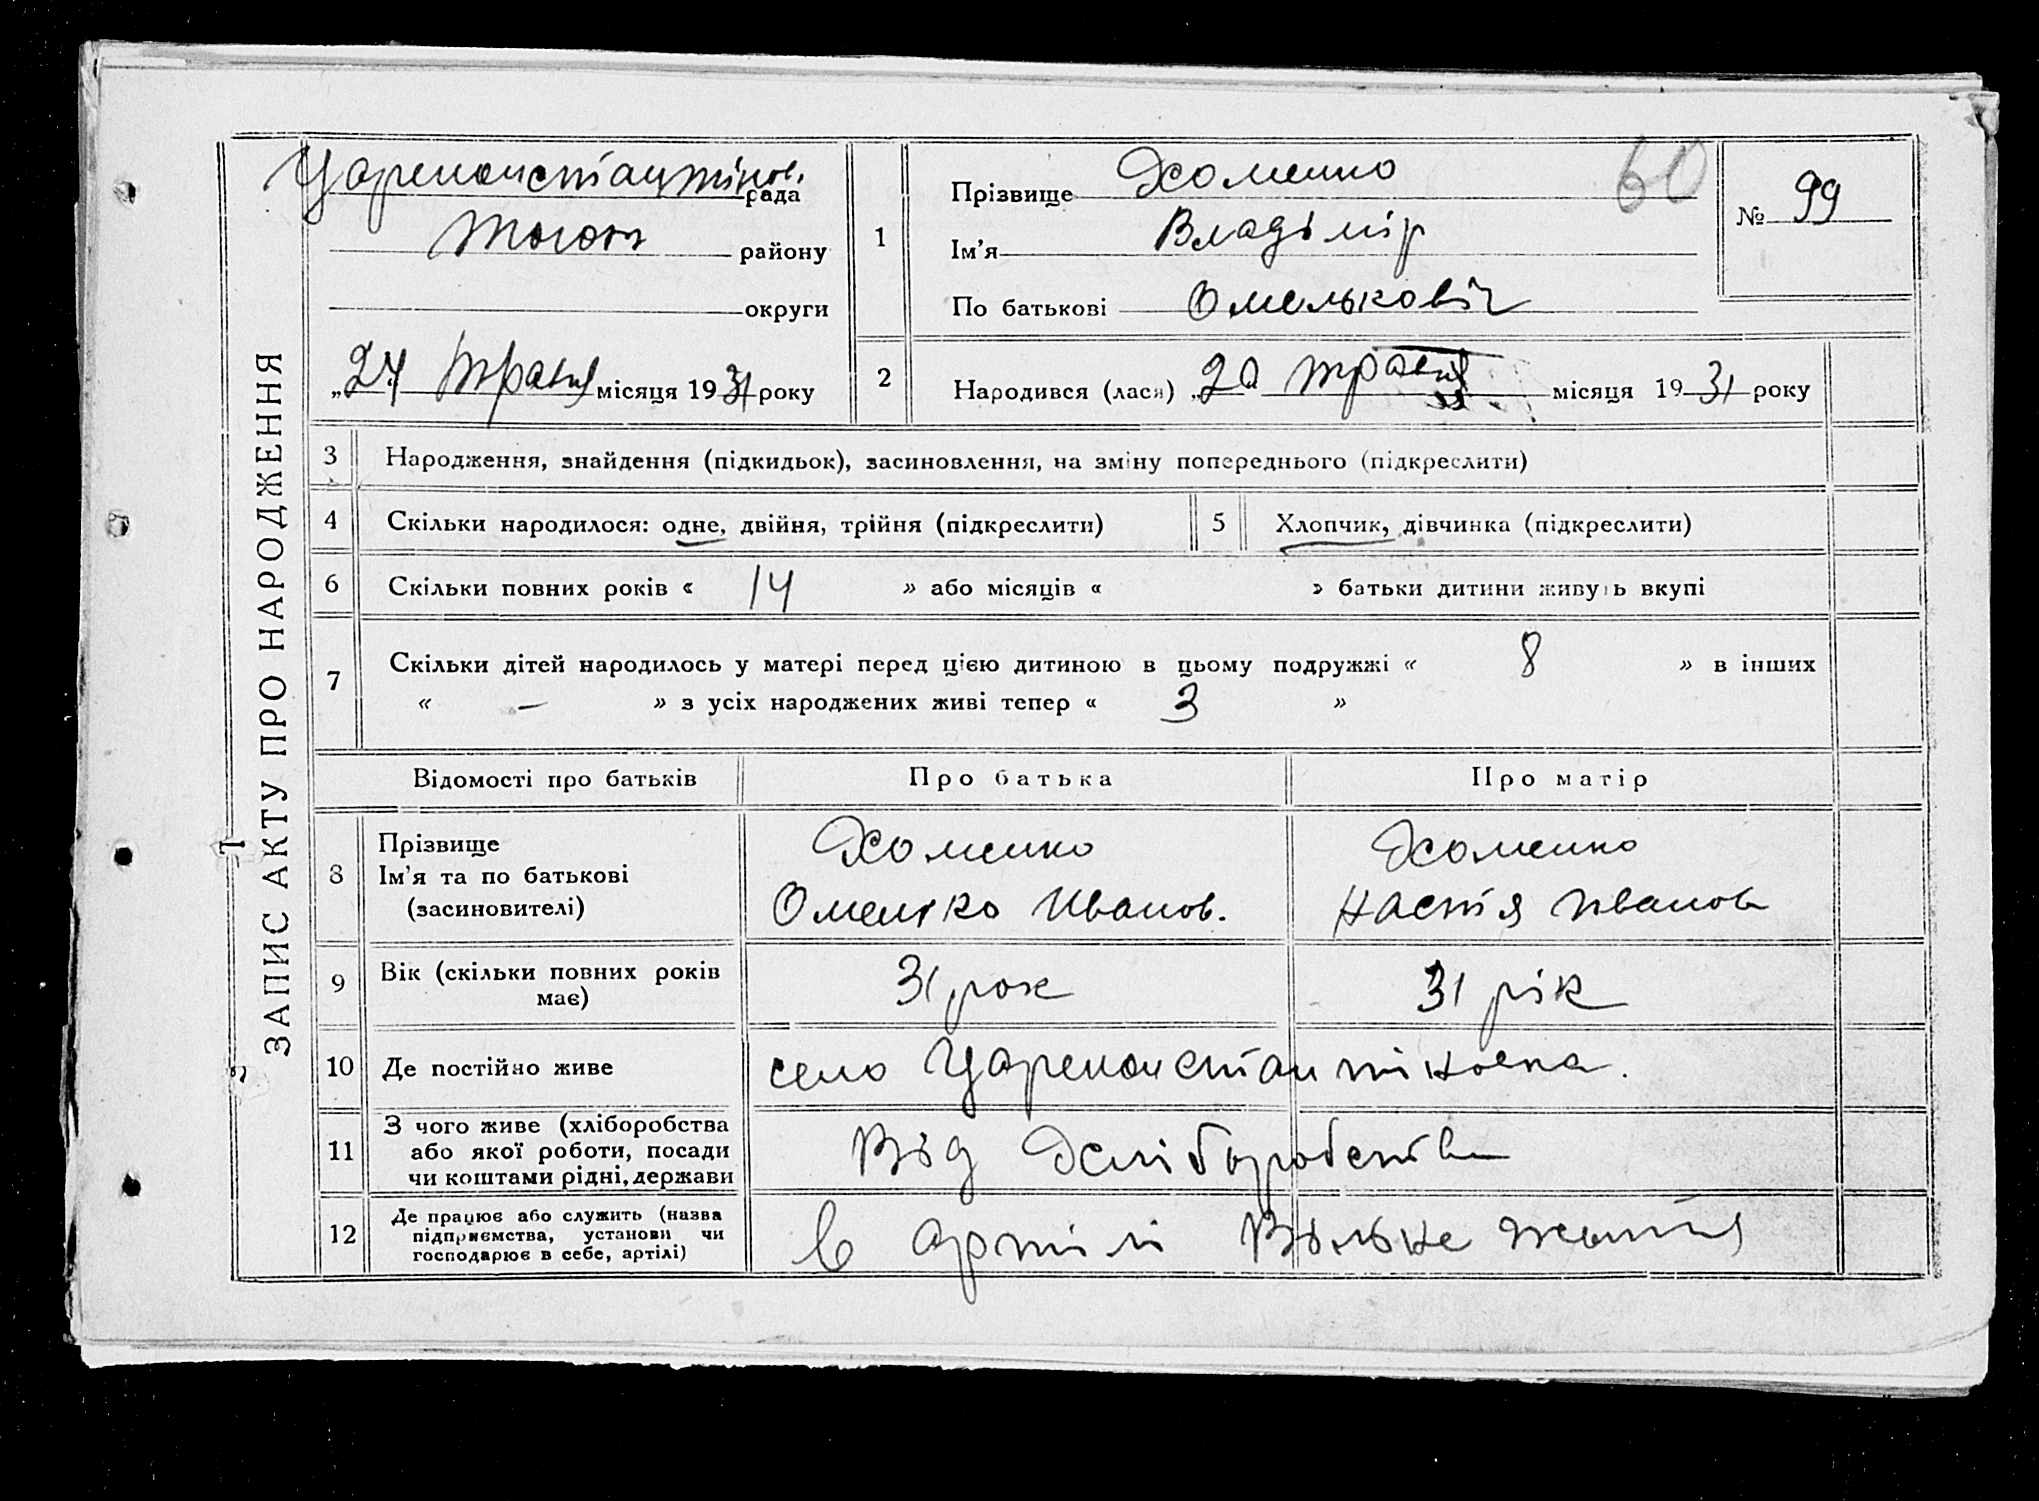 ЗАПИС АКТУ ПРО НАРОДЖЕННЯ
Цареконстантінов. рада
району
округи
„24 травня місяця 1931 року
1
Прізвище Хоменко
Ім’я Владымір
По батькові Омельковіч
60
№ 99
2
Народився (лася) „20 травня місяця 1931 року
3 Народження, знайдення (підкидьок), засиновлення, на зміну попереднього (підкреслити)
4 Скільки народилося: одне, двійня, трійня (підкреслити)
5 Хлопчик, дівчинка (підкреслити)
6 Скільки повних років « 14 » або місяців « » батьки дитини живуть вкупі
7 Скільки дітей народилось у матері перед цією дитиною в цьому подружжі « 8 » в інших
« — » з усіх народжених живі тепер « 3 »
Відомості про батьків Про батька Про матір
8 Прізвище
Ім’я та по батькові
(засиновителі)
Хоменко
Омелько Иванов.
Хоменко
Настя Иванов
9 Вік (скільки повних років
має)
31 рок
31 рік
10 Де постійно живе
село Цареконстантіновка.
11 З чого живе (хліборобства
або якої роботи, посади
чи коштами рідні, держави
Выд хліборобства
12 Де працює або служить (назва
підприємства, установи чи
господарює в себе, артілі)
в артілі Вільне життя